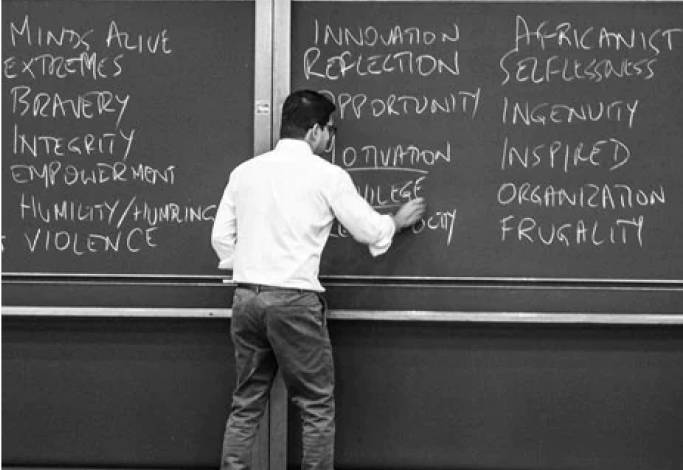 MINDS ALIVE
EXTREMES
BRAVERY
INTEGRITY
EMPOWERMENT
HUMILITY/HUMBLING
VIOLENCE
INNOVATION
REFLECTION
OPPORTUNITY
MOTIVATION
AFRICANIST
SELFLESSNESS
INGENUITY
INSPIRED
ORGANIZATION
FRUGALITY